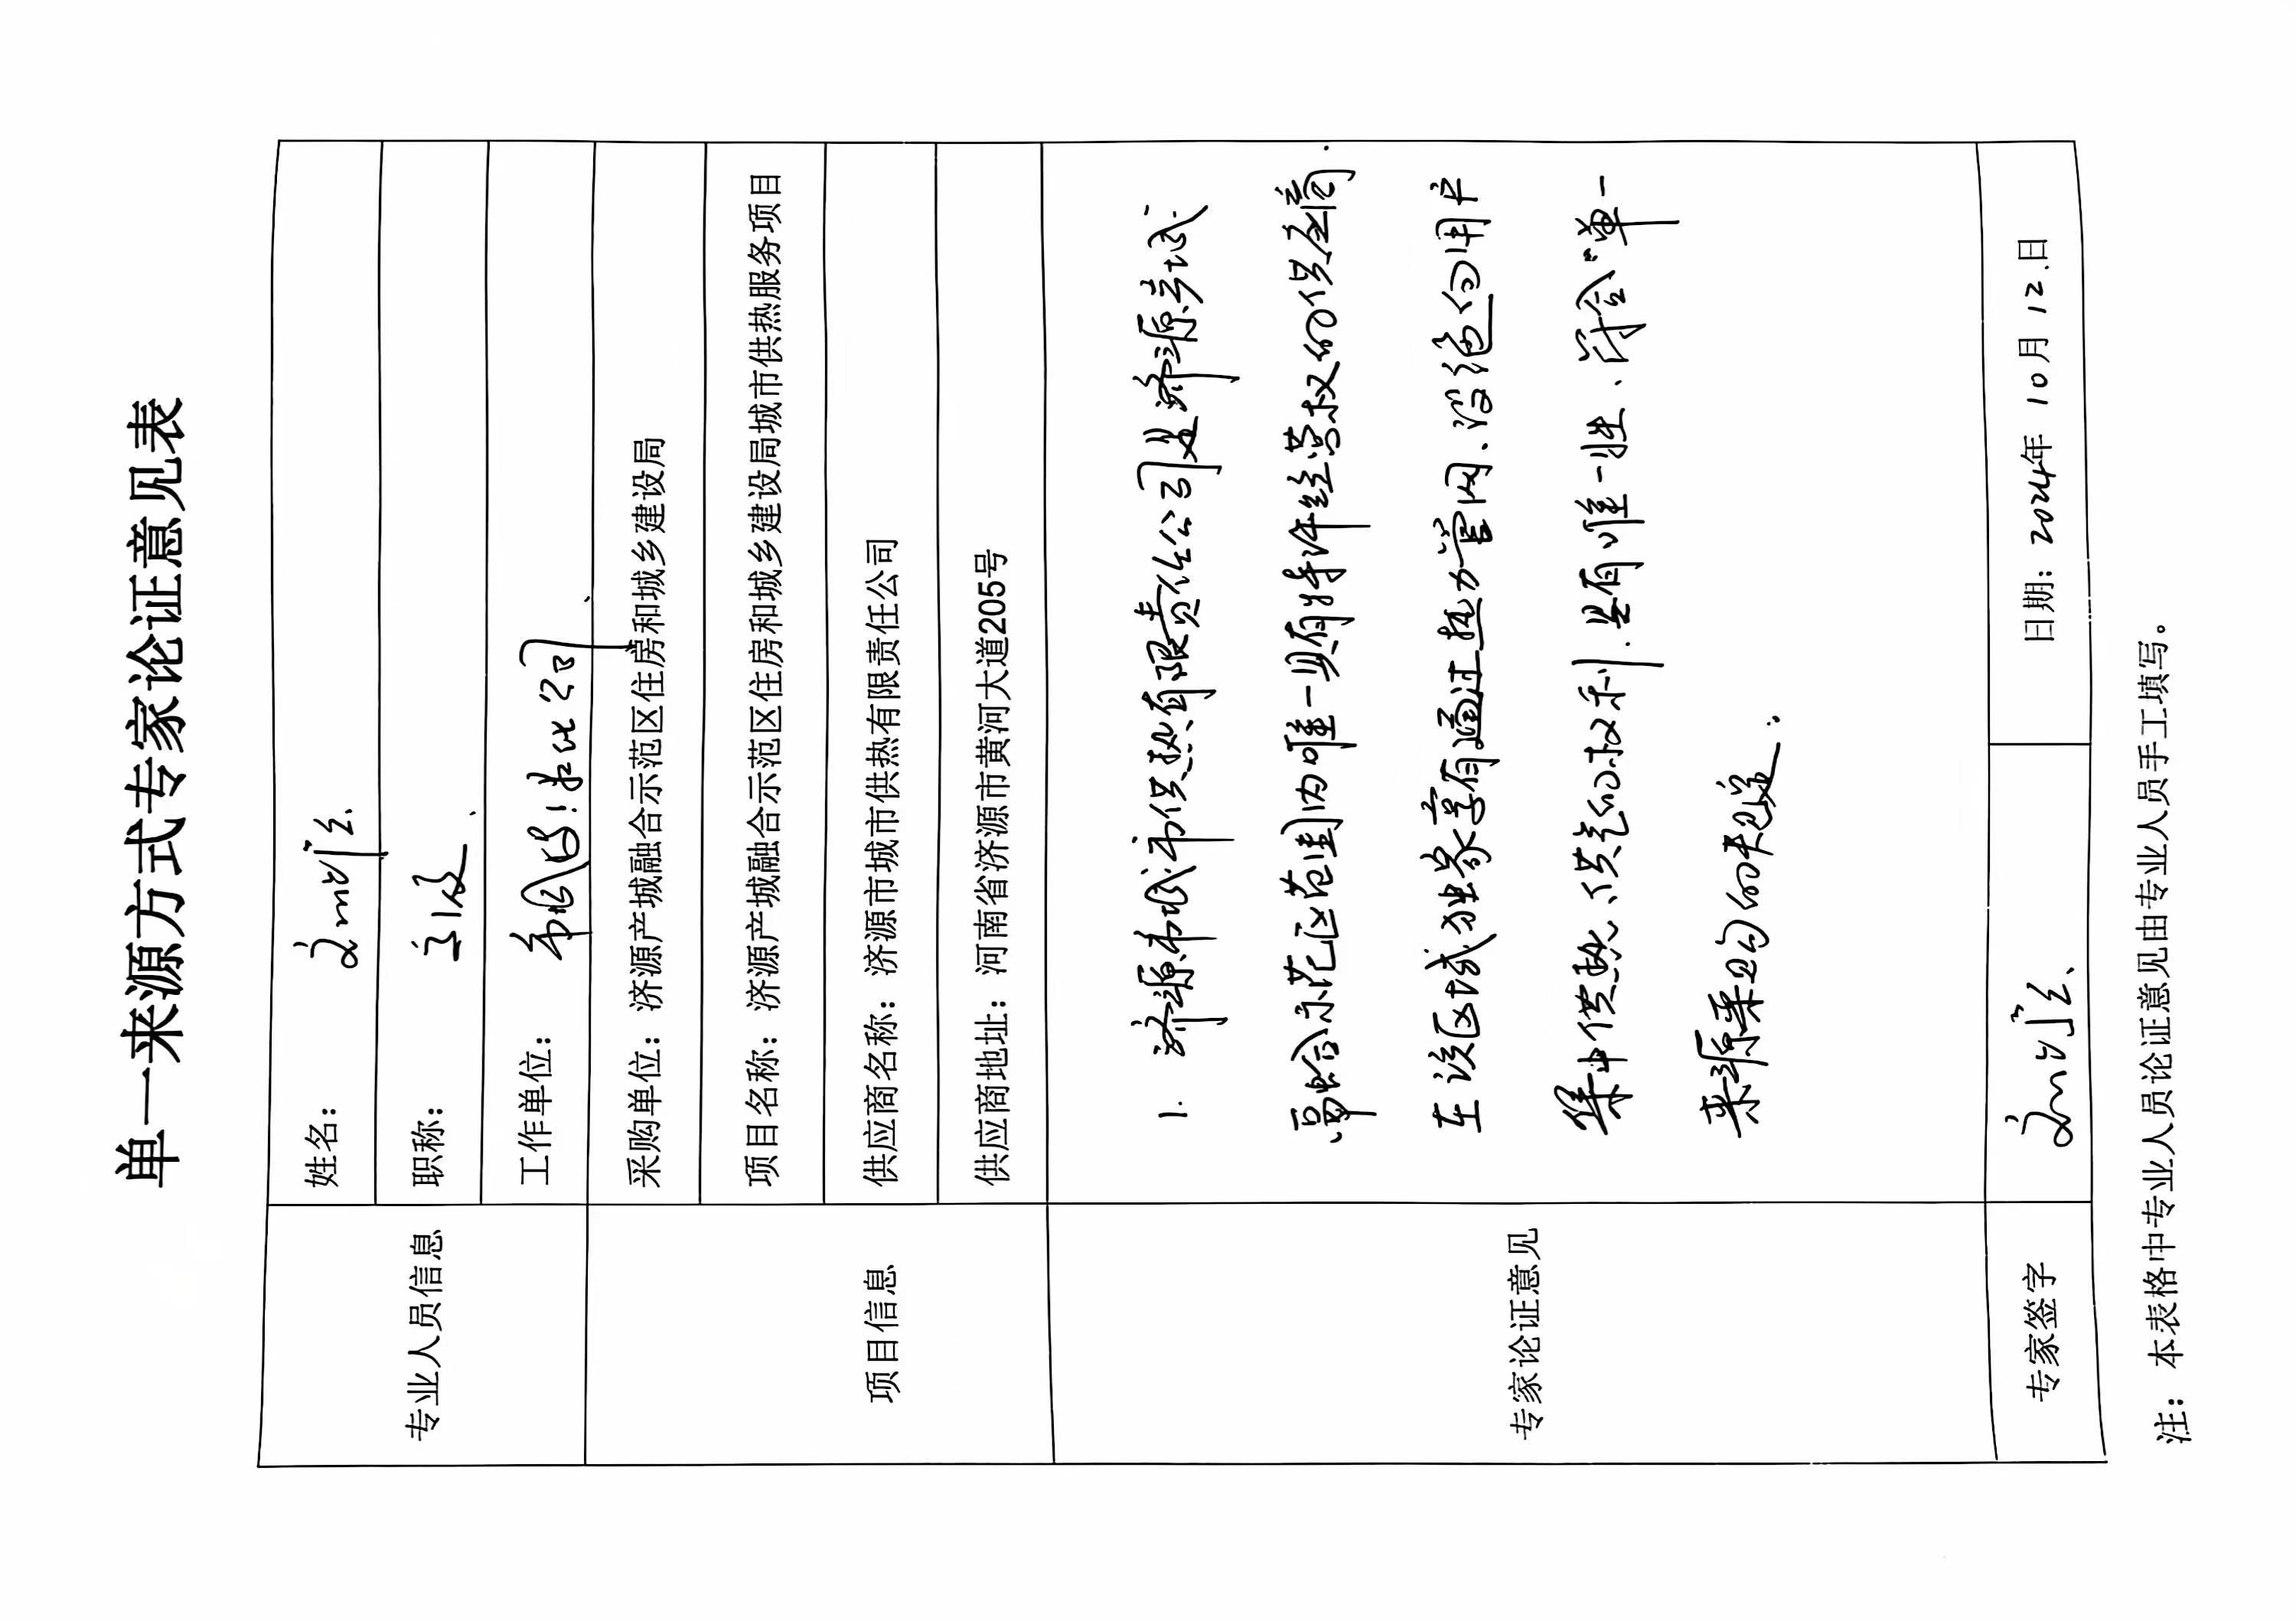 单一来源方式专家论证意见表
专业人员信息
姓名：
职称：
工作单位：
项目信息
采购单位：济源产城融合示范区住房和城乡建设局
项目名称：济源产城融合示范区住房和城乡建设局城市供热服务项目
供应商名称：济源市城市供热有限责任公司
供应商地址：河南省济源市黄河大道205号
专家论证意见
1. 济源市城市供热有限责任公司是济源产城
融合示范区范围内唯一具有特许经营权的供应商.
在该区域独家享有通过热力管网、设施向用户
集中供热、供气的权利.具有唯一性、符合“单一
来源采购的要求.
专家签字
日期：2024年10月12日
注：本表格中专业人员论证意见由专业人员手工填写。